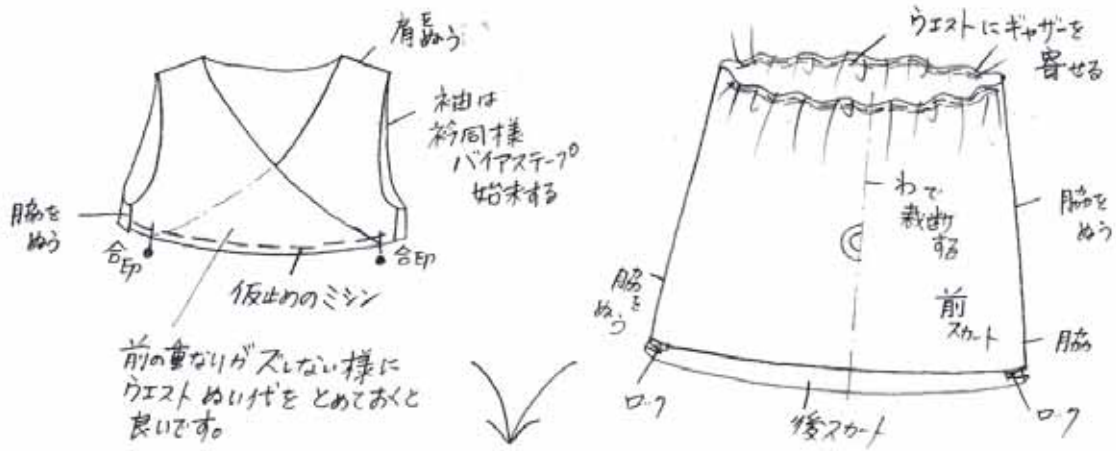 肩をぬう
袖は
衿同様
バイアステープ
始末する
脇を
ぬう
合印
合印
仮止めのミシン
前の重なりがズレない様に
ウエストぬい代をとめておくと
良いです。
ウエストにギャザーを
寄せる
わで
裁断
する
脇を
ぬう
脇を
ぬう
前
スカート
脇
ロック
ロック
後スカート